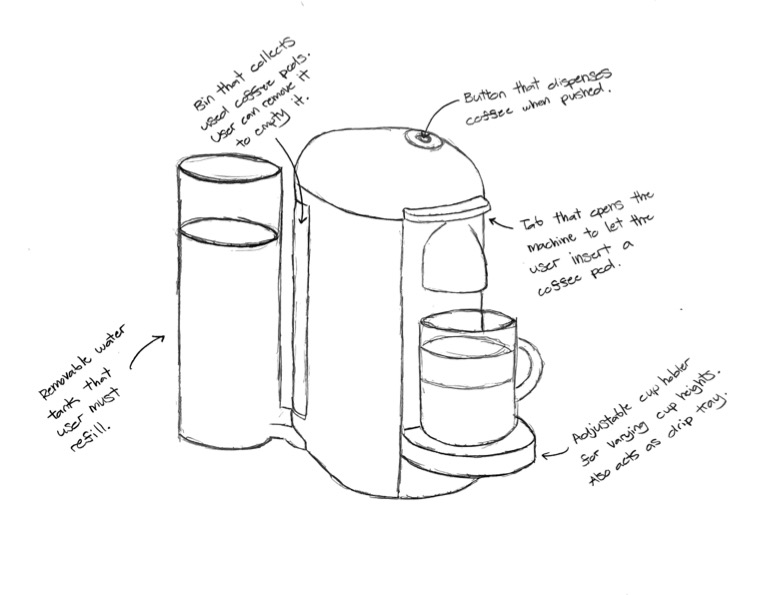 Bin that collects
used coffee pods.
User can remove it
to empty it.
Button that dispenses
coffee when pushed.
Tab that opens the
machine to let the
user insert a
coffee pod.
Removable water
tank that
user must
refill.
Adjustable cup holder
for varying cup heights.
Also acts as drip tray.